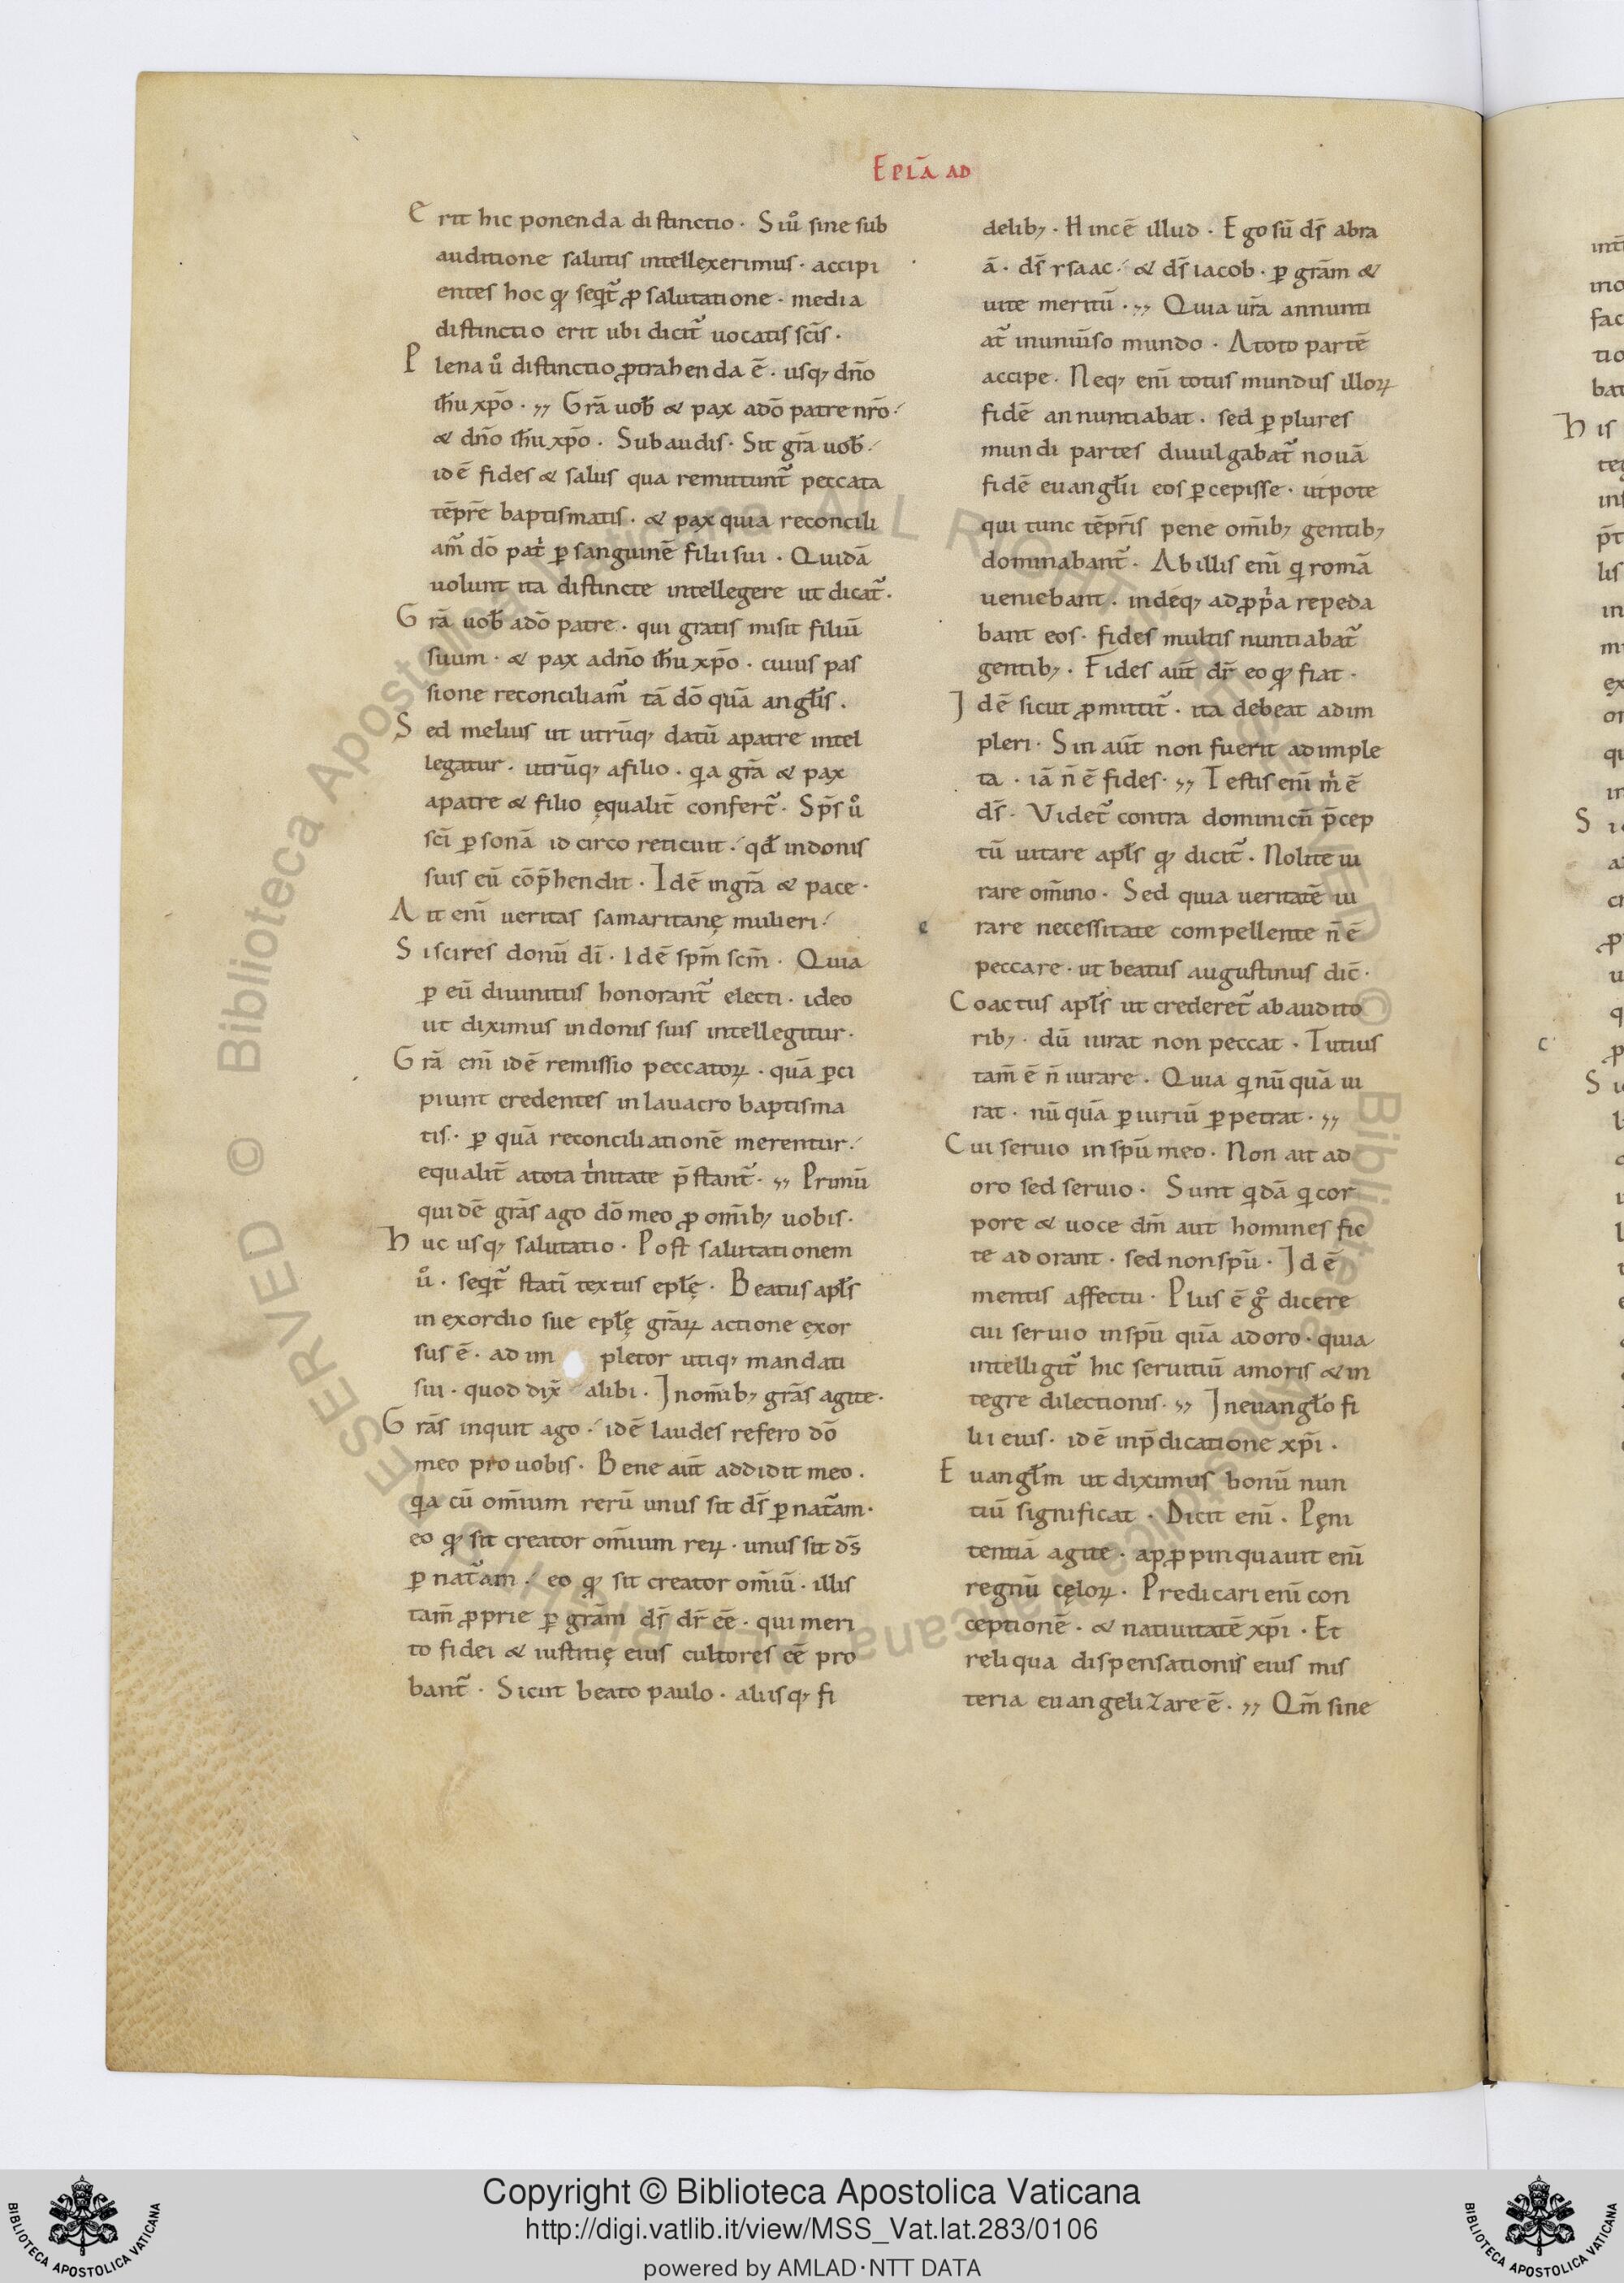 Epła ad
Erit hic ponenda distinctio. Siu̾ sine sub
auditione salutis intellexerimus. accipi
entes hoc qđ seqt̃ ꝓ salutatione. media
distinctio erit ubi dicit̃ uocatis scīs.
Plena u̾ distinctio ꝓtrahenda ē. usq; dño
ihu xp̄o. Grā uob̄ & pax adō patre nrō.
& dño ihu xp̄o. Subaudis. Sit grā uob̄.
idē fides & salus qua remittunt̃ peccata
tēpr̄e baptismatis. & pax quia reconcili
am̃ dō pat̾ ꝑ sanguinē filii sui. Quidā
uolunt ita distincte intellegere ut dicat̃.
Grā uob̄ adō patre. qui gratis misit filiū
suum. & pax adño ihu xp̄o. cuius pas
sione reconciliam̃ tā dō quā angłis.
Sed melius ut utrūq; datū apatre intel
legatur. utrūq; afilio. qa grā & pax
apatre & filio ęqualit̄ confert̃. Sp̄s u̾
scī ꝑsonā idcirco reticuit. qđ indonis
suis eū cōp̄hendit. Idē ingrā & pace.
Ait enī ueritas samaritanę mulieri.
Siscires donū dī. Idē sp̄m scm̄. Quia
ꝑ eū diuinitus honorant̃ electi. ideo
ut diximus indonis suis intellegitur.
Grā enī idē remissio peccatoꝝ. quā ꝑci
piunt credentes inlauacro baptisma
tis. ꝑ quā reconciliationē merentur.
equalit̄ atota t̾nitate p̄stant̃. Primū
quidē grās ago dō meo ꝓ om̄ib; uobis.
Huc usq; salutatio. Post salutationem
u̾. seqt̃ statī textus epłę. Beatus apłs
inexordio sue epłę grāꝝ actione exor
sus ē. adim pletor utiq; mandati
sui. quod dix̄ alibi. Inom̄ib; grās agite.
Grās inquit ago. idē laudes refero dō
meo prouobis. Bene aūt addidit meo.
qa cū om̄ium rerū unus sit ds̄ ꝑ nat̃am.
eo qđ sit creator om̄ium reꝝ. unus sit ds̄
ꝑ nat̃am. eo qđ sit creator om̄iū. illis
tam̄ ꝓprie ꝑ grām ds̄ dr̄ eē. qui meri
to fidei & iustitię eius cultores eē pro
bant̃. Sicut beato paulo. aliisq; fi
delib;. Hinc ē illud. Ego sū ds̄ abra
ā. ds̄ ysaac. & ds̄ iacob. ꝑ grām &
uite meritū. Quia ur̄a annunti
at̃ inuniūso mundo. Atoto partē
accipe. Neq; enī totus mundus illoꝝ
fidē annuntiabat. sed ꝑ plures
mundi partes diuulgabat̃ nouā
fidē euangłii eos ꝑcepisse. utpote
qui tunc tēpr̄is pene om̄ib; gentib;
dominabant̃. Abillis enī qi romā
ueniebant. indeq; adꝓp̾a repeda
bant eos. fides multis nuntiabat̃
gentib;. Fides aūt dr̄ eo qđ fiat.
Idē sicut ꝓmittit̃. ita debeat adim
pleri. Sin aūt non fuerit adimple
ta. iā n̄ ē fides. Testis enī m̾ ē
ds̄. Videt̃ contra dominicū p̄cep
tū iurare apłs qđ dicit̃. Nolite iu
rare om̄ino. Sed quia ueritatē iu
rare necessitate compellente n̄ ē
peccare. ut beatus augustinus dic̄.
Coactus apłs ut crederet̃ abaudito
rib;. dū iurat non peccat. Tutius
tam̄ ē n̄ iurare. Quia qi nūquā iu
rat. nūquā ꝑiuriū ꝑpetrat.
Cui seruio inspū meo. Non ait ad
oro sed seruio. Sunt qidā qi cor
pore & uoce dm̄ aut homines fic
te adorant. sed nonspū. Idē
mentis affectu. Plus ē g̊ dicere
cui seruio inspū quā adoro. quia
intelligit̃ hic seruitiū amoris & in
tegre dilectionis. Ineuangło fi
lii eius. idē inp̄dicatione xp̄i.
Euangłm ut diximus bonū nun
tiū significat. Dicit enī. Pęni
tentiā agite. apꝓpinquauit enī
regnū cęloꝝ. Predicari enī con
ceptionē. & natiuitatē xp̄i. Et
reliqua dispensationis eius mis
teria euangelizare ē. Qm̄ sine
Copyright © Biblioteca Apostolica Vaticana
http://digi.vatlib.it/view/MSS_Vat.lat.283/0106
powered by AMLAD·NTT DATA